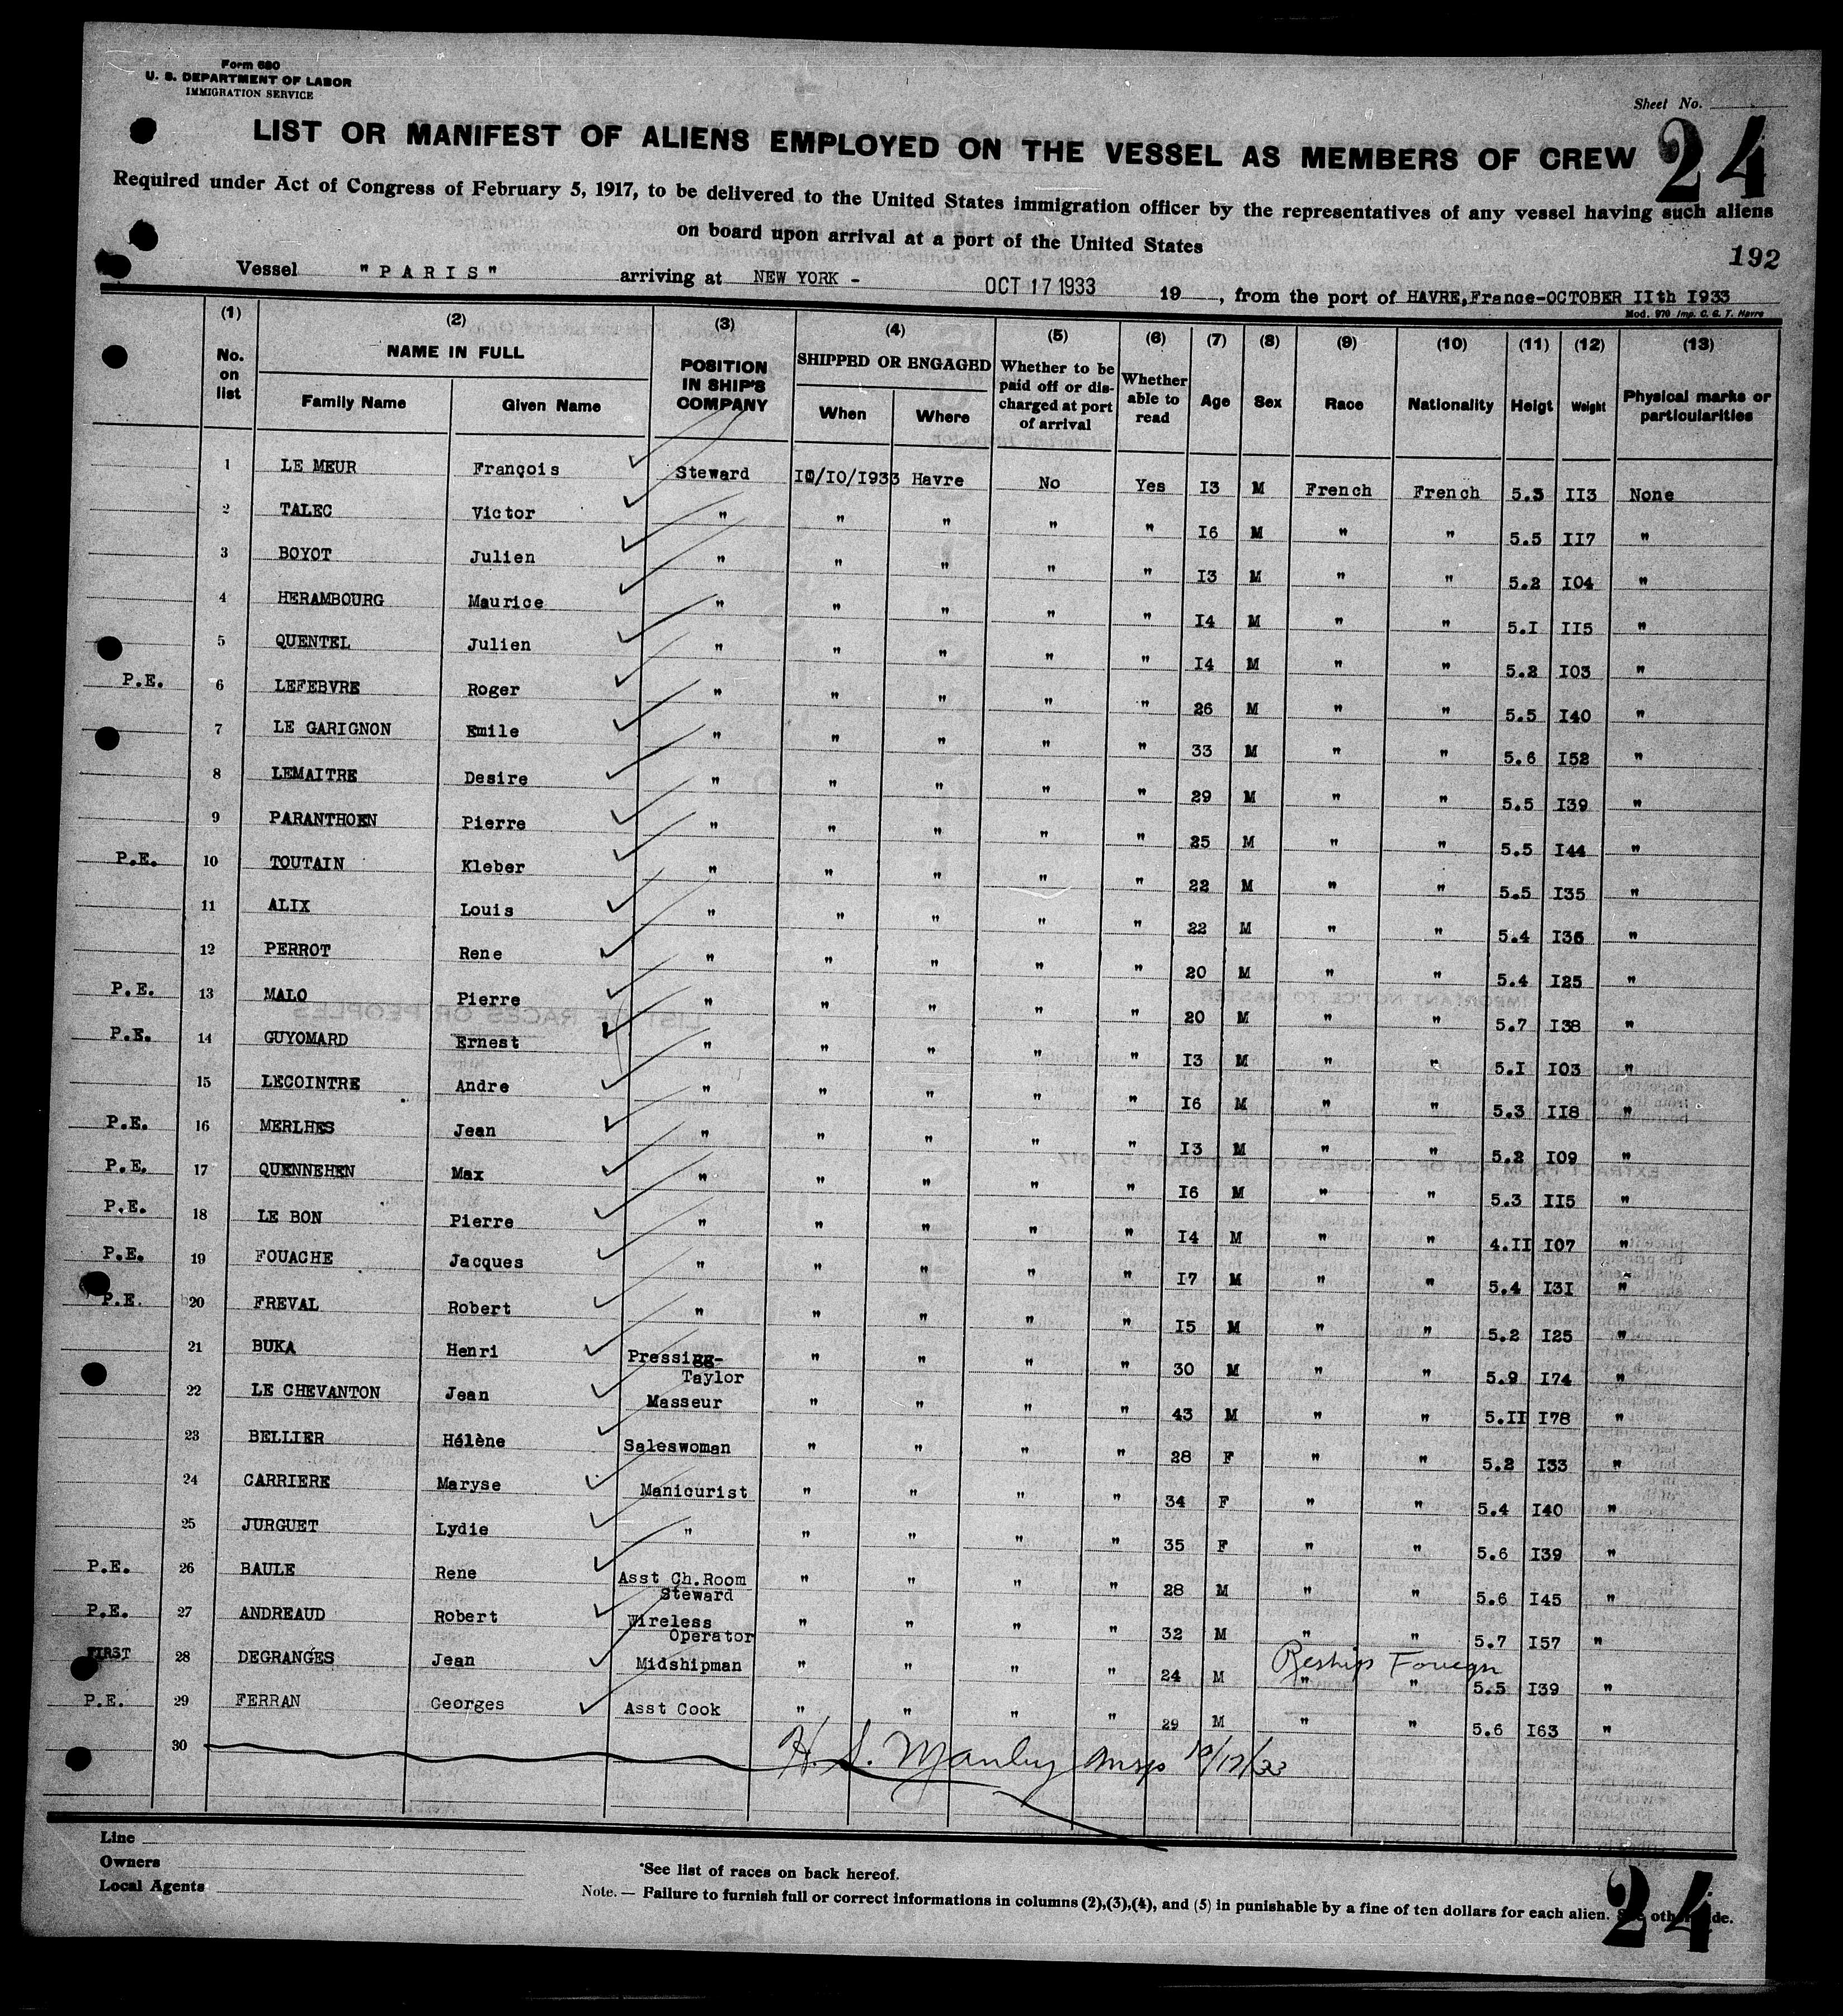 Form 680
U. S. DEPARTMENT OF LABOR
IMMIGRATION SERVICE
Sheet No.
24
LIST OR MANIFEST OF ALIENS EMPLOYED ON THE VESSEL AS MEMBERS OF CREW
Required under Act of Congress of February 5, 1917, to be delivered to the United States immigration officer by the representatives of any vessel having such aliens
on board upon arrival at a port of the United States
192
Vessel "PARIS" arriving at NEW YORK - OCT 17 1933 19 , from the port of HAVRE,France-OCTOBER IIth I933
Mod. 970 Imp. C. G. T. Havre
(1) (2) (3) (4) (5) (6) (7) (8) (9) (10) (11) (12) (13)
No. on list NAME IN FULL Family Name Given Name POSITION IN SHIP'S COMPANY SHIPPED OR ENGAGED When Where Whether to be paid off or discharged at port of arrival Whether able to read Age Sex Race Nationality Heigt Weight Physical marks or particularities
1 LE MEUR François Steward I0/IO/I933 Havre No Yes I3 M French French 5.3 II3 None
2 TALEC Victor " " " " " I6 M " " 5.5 II7 "
3 BOYOT Julien " " " " " I3 M " " 5.2 I04 "
4 HERAMBOURG Maurice " " " " " I4 M " " 5.I II5 "
5 QUENTEL Julien " " " " " I4 M " " 5.2 I03 "
P.E. 6 LEFEBVRE Roger " " " " " 26 M " " 5.5 I40 "
7 LE GARIGNON Emile " " " " " 33 M " " 5.6 I52 "
8 LEMAITRE Desire " " " " " 29 M " " 5.5 I39 "
9 PARANTHOEN Pierre " " " " " 25 M " " 5.5 I44 "
P.E. 10 TOUTAIN Kleber " " " " " 22 M " " 5.5 I35 "
11 ALIX Louis " " " " " 22 M " " 5.4 I36 "
12 PERROT Rene " " " " " 20 M " " 5.4 I25 "
P.E. 13 MALO Pierre " " " " " 20 M " " 5.7 I38 "
P.E. 14 GUYOMARD Ernest " " " " " I3 M " " 5.I I03 "
15 LECOINTRE Andre " " " " " I6 M " " 5.3 II8 "
P.E. 16 MERLHES Jean " " " " " I3 M " " 5.2 I09 "
P.E. 17 QUENNEHEN Max " " " " " I6 M " " 5.3 II5 "
P.E. 18 LE BON Pierre " " " " " I4 M " " 4.II I07 "
P.E. 19 FOUACHE Jacques " " " " " I7 M " " 5.4 I3I "
P.E. 20 FREVAL Robert " " " " " I5 M " " 5.2 I25 "
21 BUKA Henri Pressigg-Taylor " " " " 30 M " " 5.9 I74 "
22 LE CHEVANTON Jean Masseur " " " " 43 M " " 5.II I78 "
23 BELLIER Hélène Saleswoman " " " " 28 F " " 5.2 I33 "
24 CARRIERE Maryse Manicurist " " " " 34 F " " 5.4 I40 "
25 JURGUET Lydie " " " " " 35 F " " 5.6 I39 "
P.E. 26 BAULE Rene Asst Ch.Room Steward " " " " 28 M " " 5.6 I45 "
P.E. 27 ANDREAUD Robert Wireless Operator " " " " 32 M " " 5.7 I57 "
Reship Foreign
FIRST 28 DEGRANGES Jean Midshipman " " " " 24 M " " 5.5 I39 "
P.E. 29 FERRAN Georges Asst Cook " " " " 29 M " " 5.6 I63 "
30 H. S. Manley Insp 10/17/33
Line
Owners
Local Agents
*See list of races on back hereof.
Note. — Failure to furnish full or correct informations in columns (2),(3),(4), and (5) in punishable by a fine of ten dollars for each alien.
24